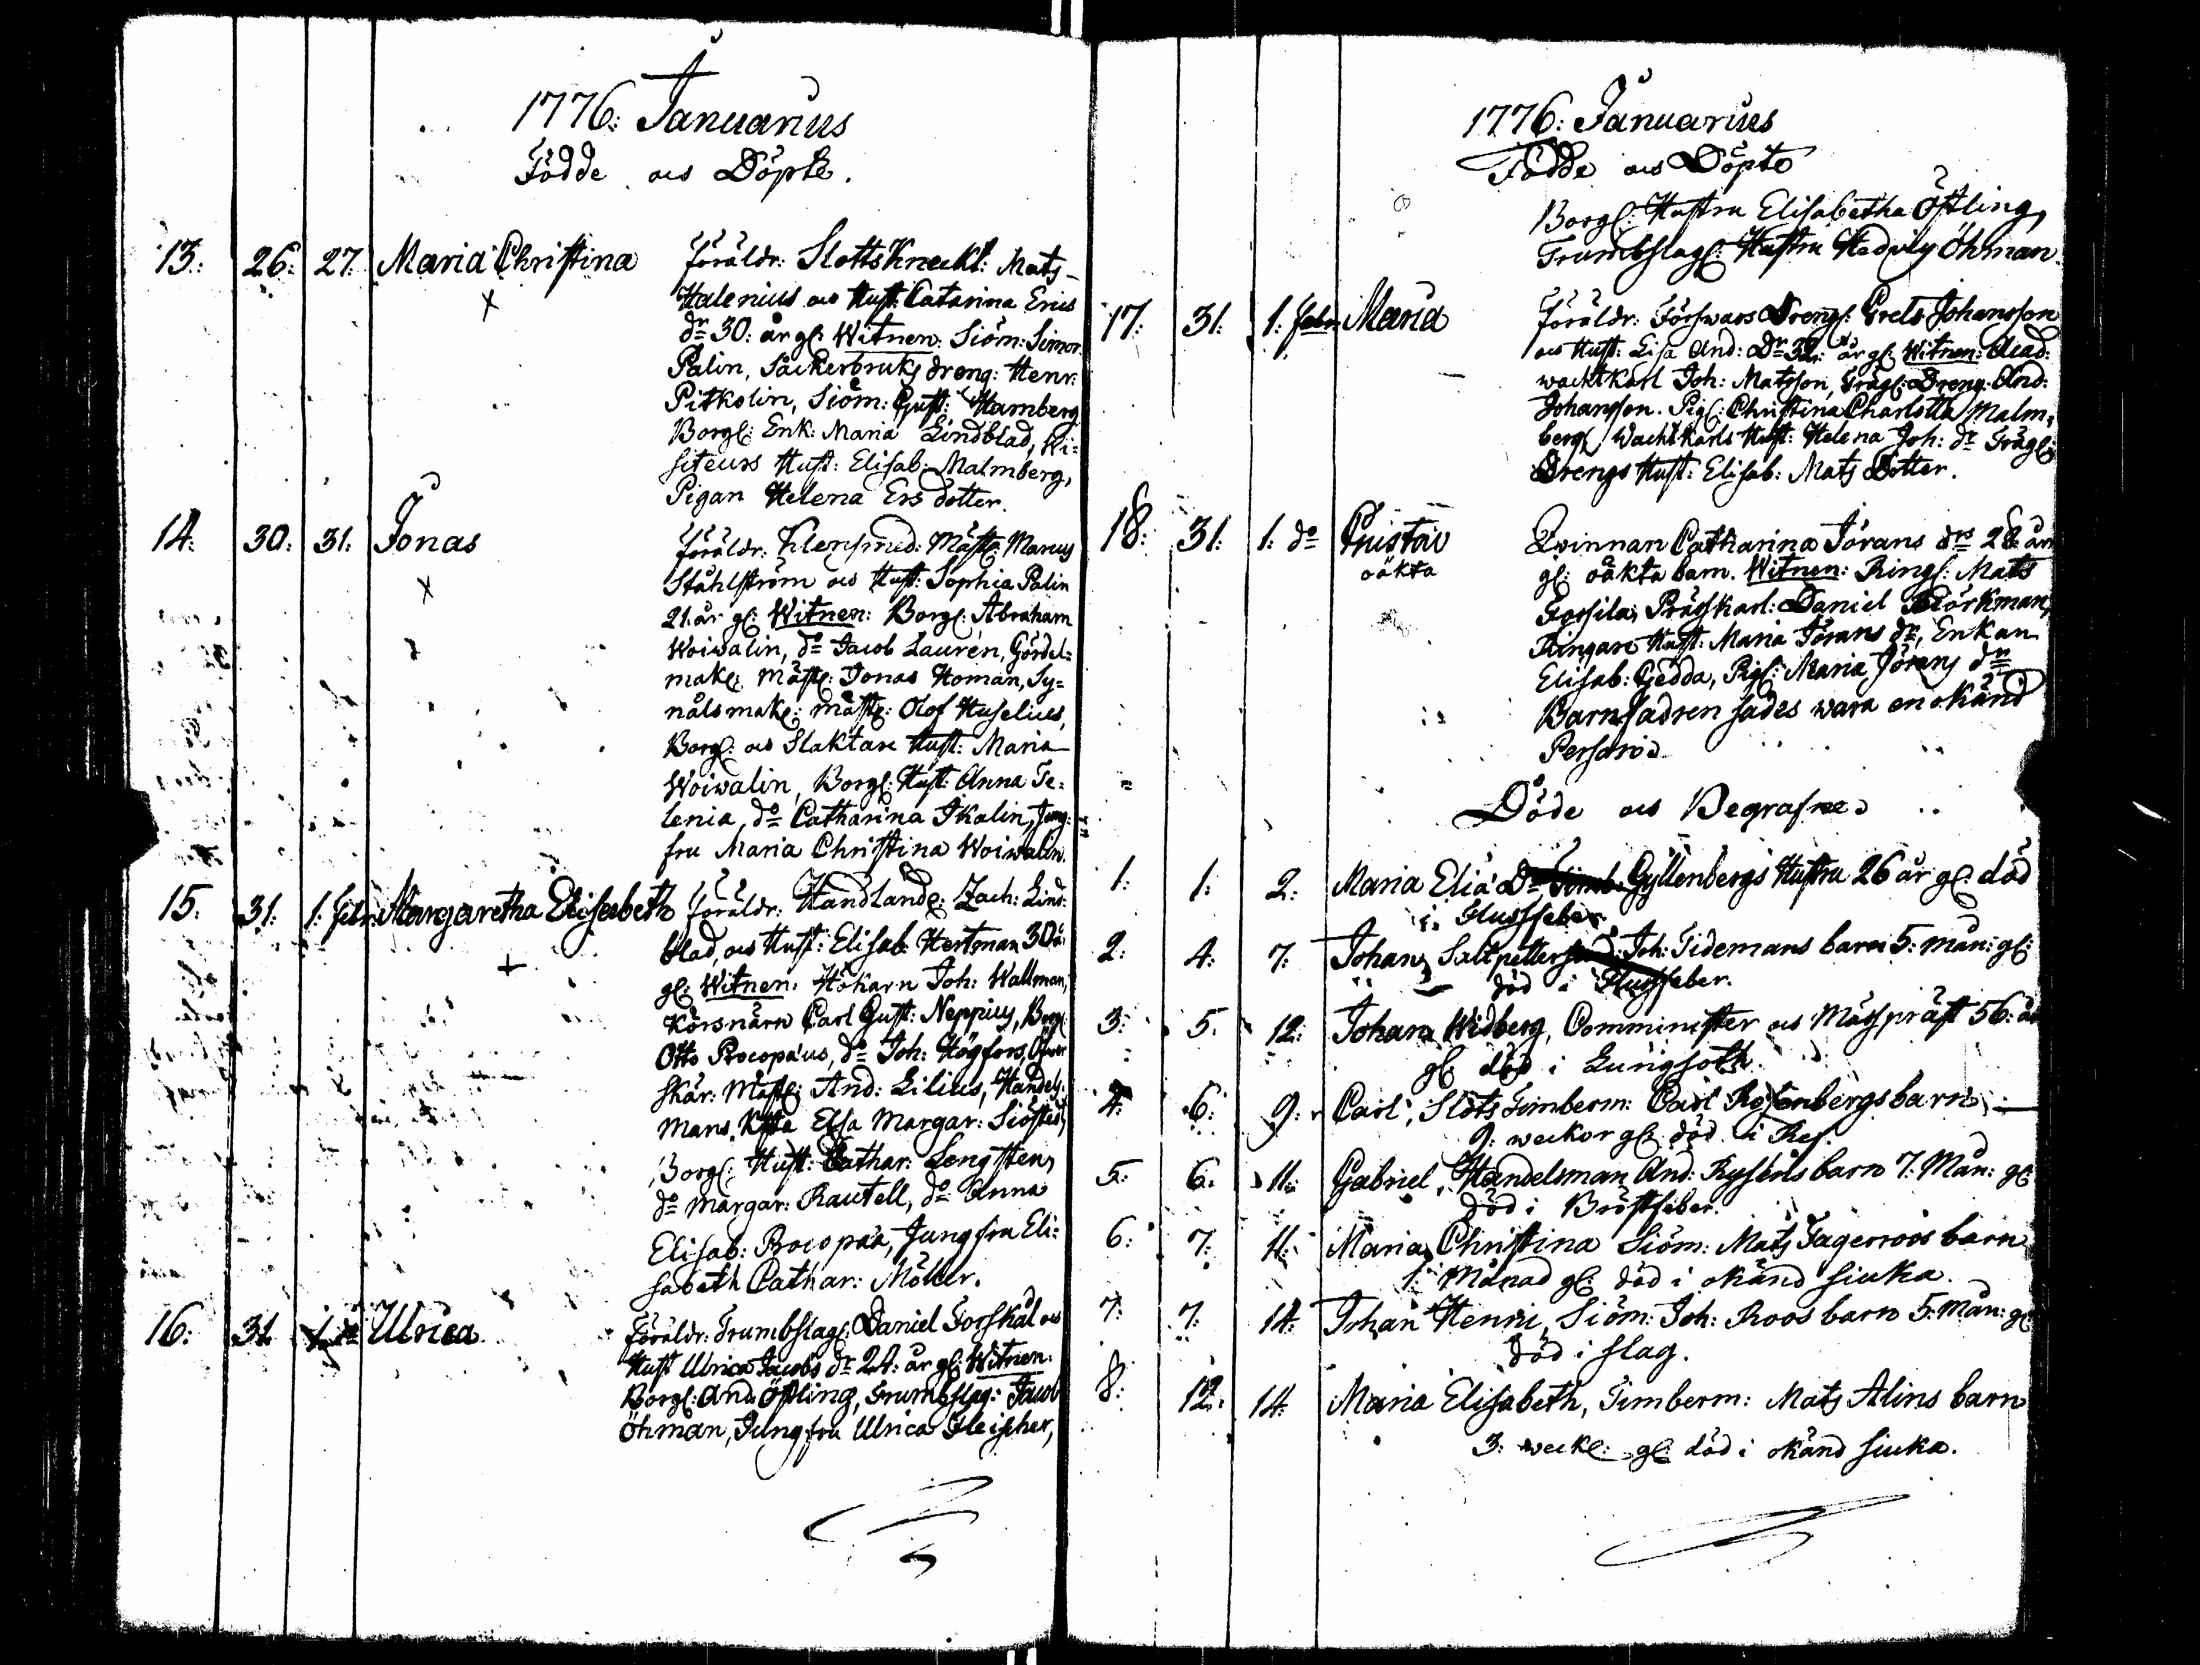 1776: Januarius
Födde och Döpte.
13: 26: 27. Maria Christina Föräldr: SlottsKneckt: Mats
Halenius och Hust: Catarina Erics
dr 30: år gl: Witnen: Siöm: Simon
Palin, Sackerbruks dreng: Henr:
Pitkolin, Siöm: Gust: Hamberg
Borg: Enk: Maria Lindblad, Wi=
siteurs Hust: Elisab: Malmberg,
Pigan Helena Ers dotter.
14: 30: 31: Jonas Föräldr: Klensmed: Mäst: Marcus
Ståhlström och Hust: Sophia Palin
21: år gl: Witnen: Borg: Abraham
Woiwalin, do Jacob Laurén, Gördel=
mak: Mäst: Jonas Homan, Sy=
nålsmak: mäst: Olof Huselius,
Borg: och Slaktare Hust: Maria
Woiwalin, Borg: Hust: Anna Te=
lenia, do Catharina Ikalin, Jung:
fru Maria Christina Woiwalin.
15: 31: 1: febr: Margaretha Elisabeth Föräldr: Handland: Zach: Lind:
blad, och Hust: Elisab: Hertman 30 år
gl: Witnen: Hökarn Joh: Wallman,
Körsnärn Carl Gust: Neppius, Borg:
Otto Procopæus, do Joh: Högfors,
skär: Mäst: And: Lilius, Handels:
mans Elsa Margar:
Borg: Hust: Cathar: Lengsten,
do Margar: Rautell, do Anna
Elisab: Procopæa, Jungfru Eli:
sabeth Cathar: Möller.
16: 31 1 do Ulrica Föräldr: Trumbslag: Daniel Forskål och
Hust Ulrica Jacobs dr 24: år gl: Witnen:
Borg: And: Östling, Trumbslag: Jacob
Öhman, Jungfru Ulrica Fleischer,
1776: Januarius
Födde och Döpte
Borg: Hustru Elisabetha Östling,
Trumbslag: Hustru Hedvig Öhman.
17: 31: 1: febr Maria Föräldr: Förswars Dreng: Grels Johansson
och Hust: Lisa And: Dr 32: år gl: Witnen: Acad:
wachtkarl Joh: Matsson, Trägl: Dreng And:
Johansson. Pig: Christina Charlotta Malm,
berg, Wachtkarls Hust: Helena Joh: dr Trägl:
Drengs Hust: Elisab: Mats Dotter.
18: 31: 1: do Gustav Qvinnan Catharina Jörans drs 28: år
oäkta gl: oäkta barn. Witnen: Ring: Mats
Daniel Björkman,
Ringare Hust: Maria Jörans dr, Enkan
Elisab: Gedda, Pig: Maria Jörans dr
Barnfadren sades wara en okänd
Person.
Döde och Begrafne
1: 1: 2: Maria Elia Dr Timb: Gyllenbergs Hustru 26 år gl: död
i Flussfeber.
2: 4: 7: Johan, Saltpettersiud: Joh: Tidemans barn 5: mån: gl:
död i Flussfeber.
3: 5: 12: Johan Widberg, Comminister och Mässpräst 56: år
gl: död i Lungsoth.
4: 6: 9: Carl, Slots Timberm: Carl Rosenbergs barn
9: weckor gl: död i Ref.
5: 6: 11: Gabriel, Handelsman And: barn 7: Mån: gl:
död i Bröstfeber.
6: 7: 11: Maria Christina Siöm: Mats Fagerroos barn
1: Månad gl: död i okänd siuka.
7: 7: 14: Johan Henric, Siöm: Joh: Roos barn 5: Mån: gl:
död i slag.
8: 12: 14: Maria Elisabeth, Timberm: Mats Alins barn
3: weck: gl: död i okänd siuka.